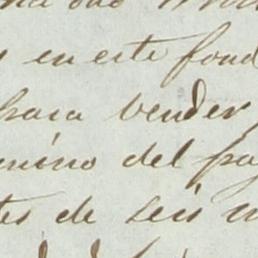 en este fond
para vender
mino del pa
tes de seis